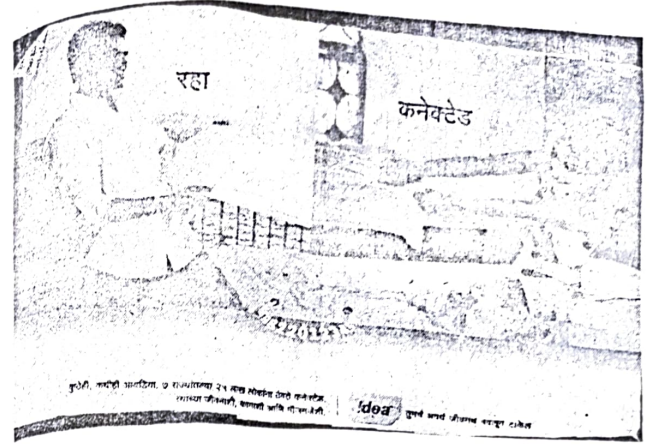 रहा
कनेक्टेड
कुठेही, कधीही आयडिया, ७ राज्यांतल्या २५ लाख लोकांना ठेवते कनेक्टेड.
त्यांच्या जीवनाशी, कामाशी आणि
!dea
तुमचं अवघं जीवनच बदलून टाकेल